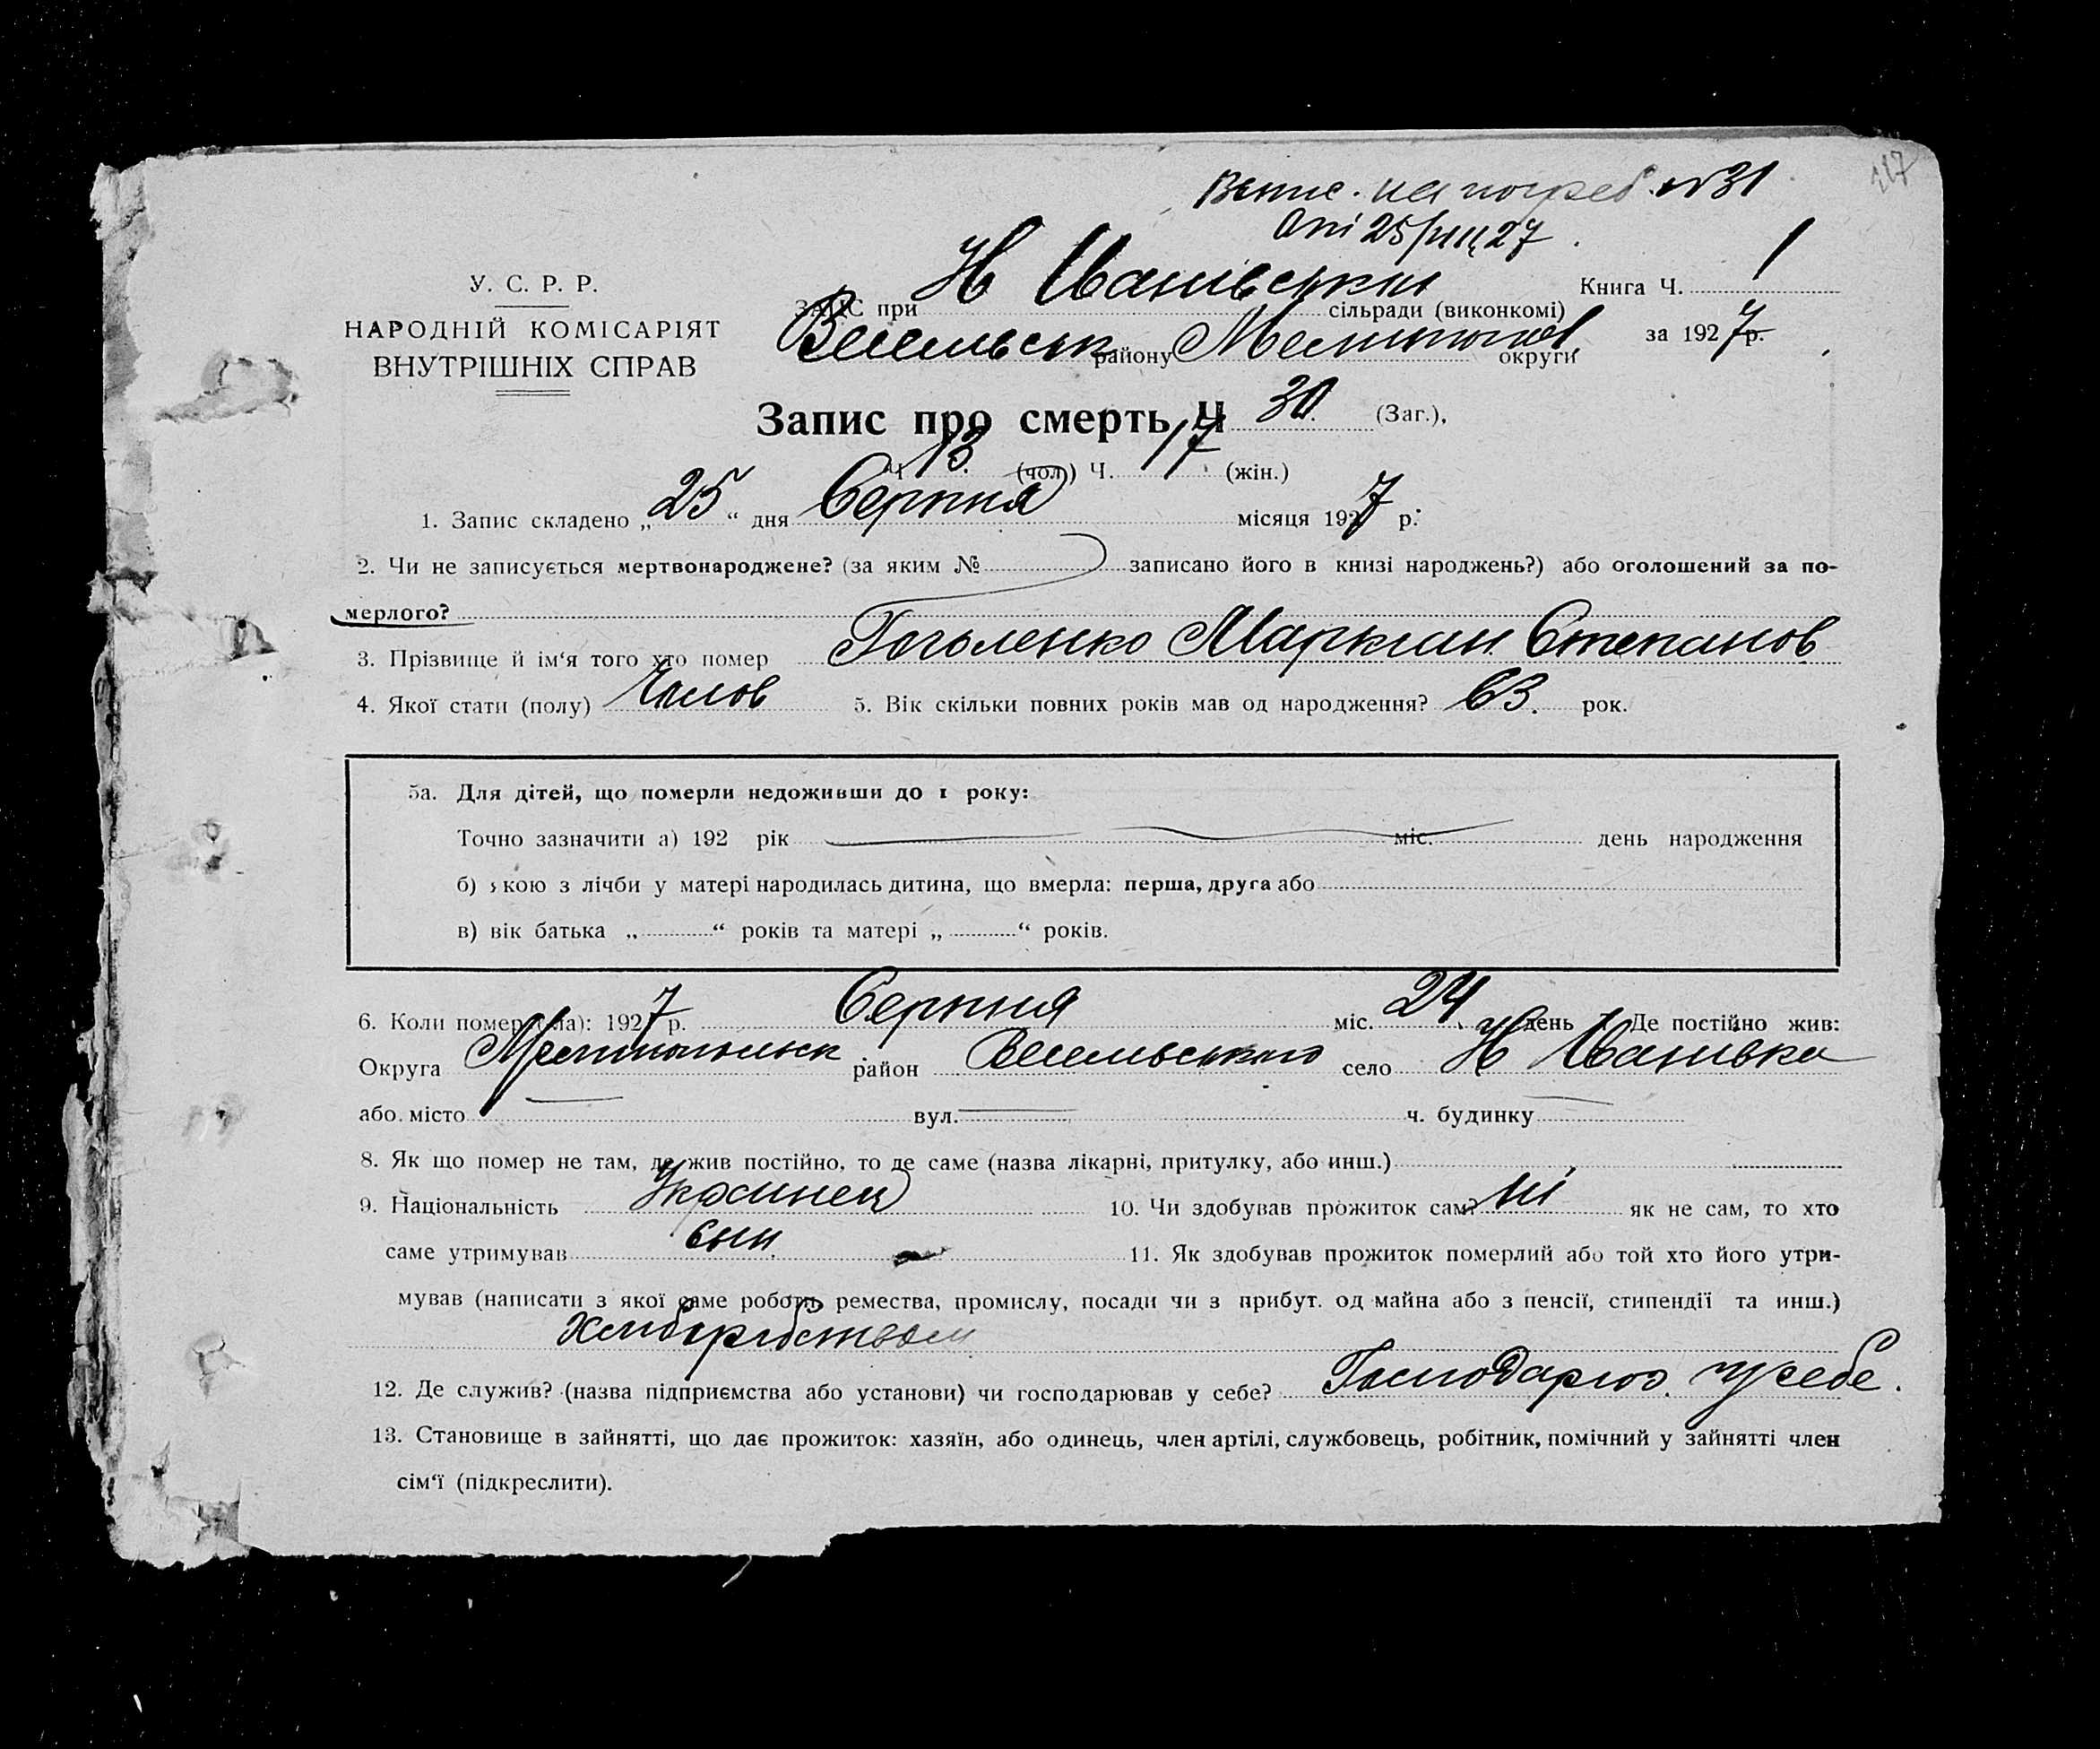 217
Випис. на погреб. №31
від 25/VIII 27.
У. С. Р. Р.
НАРОДНІЙ КОМІСАРІЯТ
ВНУТРІШНІХ СПРАВ
ЗАГС при Н Іванівський сільради (виконкомі)
Книга Ч. 1
Весельськ району Мелитопол. округи
за 1927 р.
Запис про смерть Ч 30. (Заг.),
Ч 13. (чол) Ч. 17. (жін.)
1. Запис складено „25“ дня Серпня місяця 1927 р.
2. Чи не записується мертвонароджене? (за яким № записано його в книзі народжень?) або оголошений за по-
мерлого?
3. Прізвище й ім‘я того хто помер Гоголенко Маркіан Степанов
4. Якої стати (полу) Чолов 5. Вік скільки повних років мав од народження? 63. рок.
5а. Для дітей, що померли недоживши до 1 року:
Точно зазначити а) 192 рік міс. день народження
б) якою з лічби у матері народилась дитина, що вмерла: перша, друга або
в) вік батька „ “ років та матері „ “ років.
6. Коли помер (ла): 1927 р. Серпня міс. 24 день 7. Де постійно жив:
Округа Мелитопольск район Весельського село Н Іванівка
або місто вул. ч. будинку
8. Як що помер не там, де жив постійно, то де саме (назва лікарні, притулку, або инш.)
9. Національність Украинец 10. Чи здобував прожиток сам? ні як не сам, то хто
саме утримував сын. 11. Як здобував прожиток померлий або той хто його утри-
мував (написати з якої саме роботи, ремества, промислу, посади чи з прибут. од майна або з пенсії, стипендії та инш.)
Хлиборобством
12. Де служив? (назва підприємства або установи) чи господарював у себе? Господарюв. у себе.
13. Становище в зайнятті, що дає прожиток: хазяїн, або одинець, член артілі, службовець, робітник, помічний у зайнятті член
сім‘ї (підкреслити).